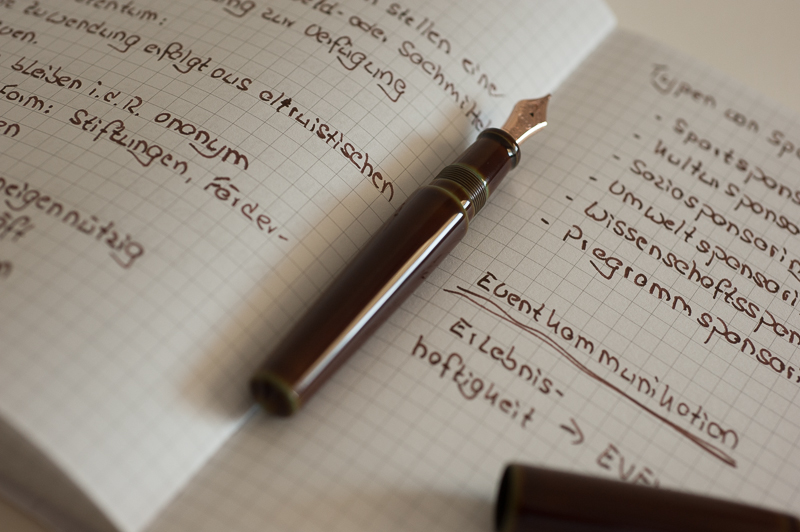 stellen eine
zur Verfügung
Geld- oder Sachmittel
Zuwendung erfolgt aus altruistischen
bleiben i.d.R. anonym
Form: Stiftungen, Förder-
eigennützig
Typen von Spo
- Sportspons
- Kultursponso
- Soziosponsorin
- Umweltsponsori
- Wissenschaftsspon
- Programmsponsori
Eventkommunikation
Erlebnis-
haftigkeit → EVE